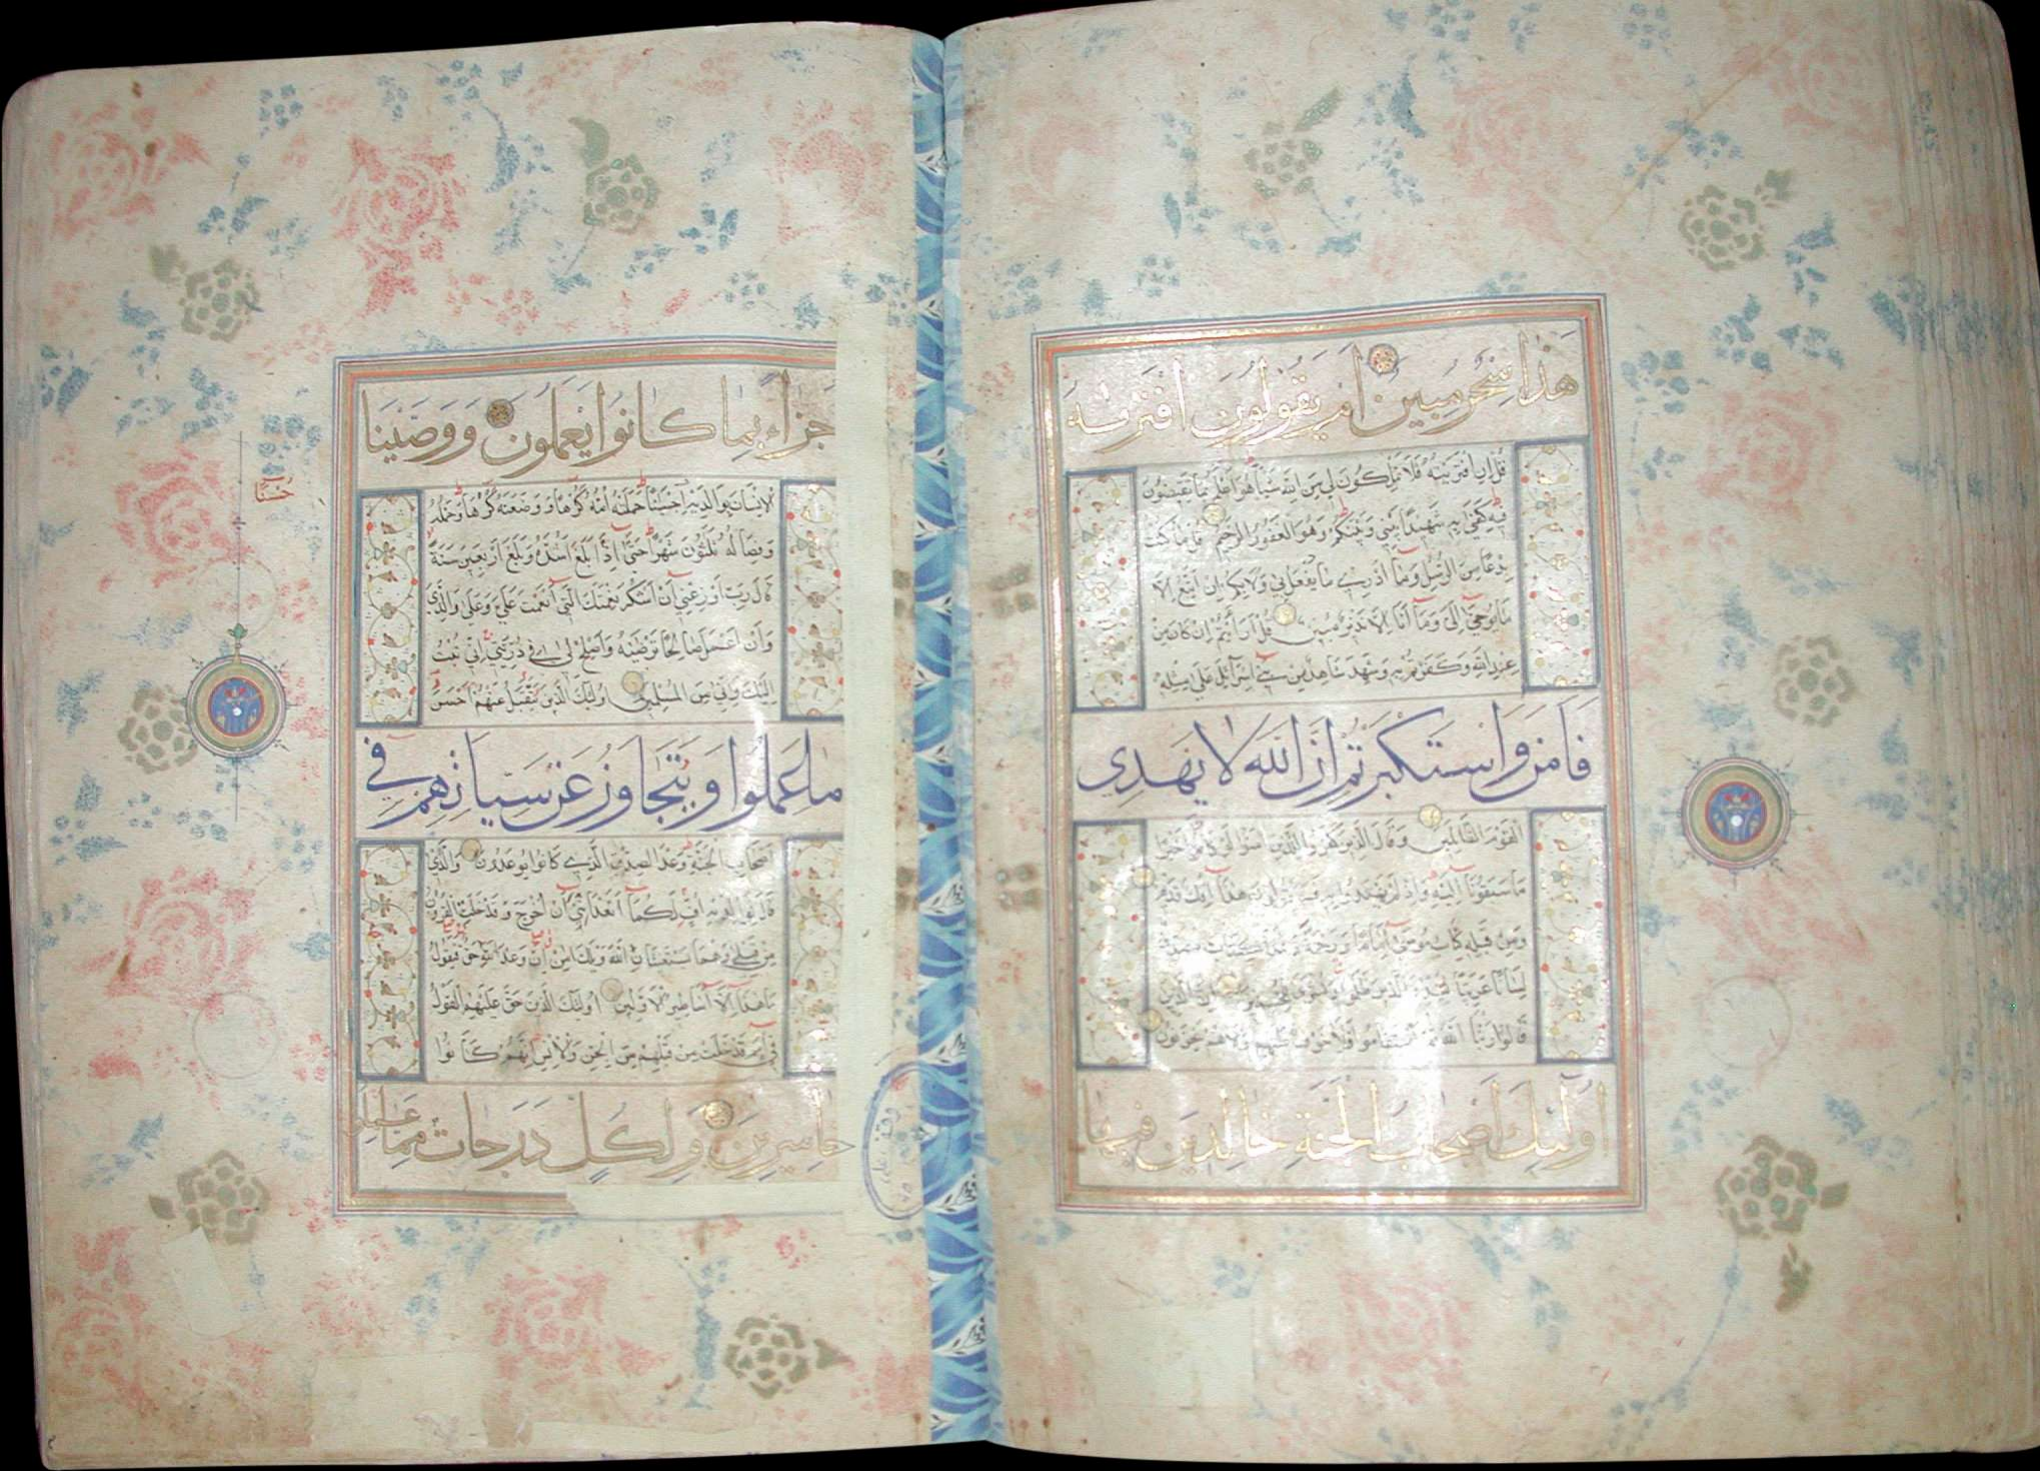 هَذَا سِحْرٌ مُبِينٌ أَمْ يَقُولُونَ افْتَرَىٰهُ
قُلْ إِنِ افْتَرَيْتُهُ فَلَا تَمْلِكُونَ لِي مِنَ اللَّهِ شَيْئًا هُوَ أَعْلَمُ بِمَا تُفِيضُونَ
فِيهِ كَفَىٰ بِهِ شَهِيدًا بَيْنِي وَبَيْنَكُمْ وَهُوَ الْغَفُورُ الرَّحِيمُ قُلْ مَا كُنْتُ
بِدْعًا مِنَ الرُّسُلِ وَمَا أَدْرِي مَا يُفْعَلُ بِي وَلَا بِكُمْ إِنْ أَتَّبِعُ إِلَّا
مَا يُوحَىٰ إِلَيَّ وَمَا أَنَا إِلَّا نَذِيرٌ مُبِينٌ قُلْ أَرَأَيْتُمْ إِنْ كَانَ مِنْ
عِنْدِ اللَّهِ وَكَفَرْتُمْ بِهِ وَشَهِدَ شَاهِدٌ مِنْ بَنِي إِسْرَائِيلَ عَلَىٰ مِثْلِهِ
فَآمَنَ وَاسْتَكْبَرْتُمْ إِنَّ اللَّهَ لَا يَهْدِي
الْقَوْمَ الظَّالِمِينَ وَقَالَ الَّذِينَ كَفَرُوا لِلَّذِينَ آمَنُوا لَوْ كَانَ خَيْرًا
مَا سَبَقُونَا إِلَيْهِ وَإِذْ لَمْ يَهْتَدُوا بِهِ فَسَيَقُولُونَ هَذَا إِفْكٌ قَدِيمٌ
وَمِنْ قَبْلِهِ كِتَابُ مُوسَىٰ إِمَامًا وَرَحْمَةً وَهَذَا كِتَابٌ مُصَدِّقٌ
لِسَانًا عَرَبِيًّا لِيُنْذِرَ الَّذِينَ ظَلَمُوا وَبُشْرَىٰ لِلْمُحْسِنِينَ إِنَّ الَّذِينَ
قَالُوا رَبُّنَا اللَّهُ ثُمَّ اسْتَقَامُوا فَلَا خَوْفٌ عَلَيْهِمْ وَلَا هُمْ يَحْزَنُونَ
أُولَٰئِكَ أَصْحَابُ الْجَنَّةِ خَالِدِينَ فِيهَا
جَزَاءً بِمَا كَانُوا يَعْمَلُونَ وَوَصَّيْنَا
الْإِنْسَانَ بِوَالِدَيْهِ إِحْسَانًا حَمَلَتْهُ أُمُّهُ كُرْهًا وَوَضَعَتْهُ كُرْهًا وَحَمْلُهُ
وَفِصَالُهُ ثَلَٰثُونَ شَهْرًا حَتَّىٰ إِذَا بَلَغَ أَشُدَّهُ وَبَلَغَ أَرْبَعِينَ سَنَةً
قَالَ رَبِّ أَوْزِعْنِي أَنْ أَشْكُرَ نِعْمَتَكَ الَّتِي أَنْعَمْتَ عَلَيَّ وَعَلَىٰ وَالِدَيَّ
وَأَنْ أَعْمَلَ صَالِحًا تَرْضَىٰهُ وَأَصْلِحْ لِي فِي ذُرِّيَّتِي إِنِّي تُبْتُ
إِلَيْكَ وَإِنِّي مِنَ الْمُسْلِمِينَ أُولَٰئِكَ الَّذِينَ يُتَقَبَّلُ عَنْهُمْ أَحْسَنُ
مَا عَمِلُوا وَيُتَجَاوَزُ عَنْ سَيِّئَاتِهِمْ فِي
أَصْحَابِ الْجَنَّةِ وَعْدَ الصِّدْقِ الَّذِي كَانُوا يُوعَدُونَ وَالَّذِي
قَالَ لِوَالِدَيْهِ أُفٍّ لَكُمَا أَتَعِدَانِنِي أَنْ أُخْرَجَ وَقَدْ خَلَتِ الْقُرُونُ
مِنْ قَبْلِي وَهُمَا يَسْتَغِيثَانِ اللَّهَ وَيْلَكَ آمِنْ إِنَّ وَعْدَ اللَّهِ حَقٌّ فَيَقُولُ
مَا هَذَا إِلَّا أَسَاطِيرُ الْأَوَّلِينَ أُولَٰئِكَ الَّذِينَ حَقَّ عَلَيْهِمُ الْقَوْلُ
فِي أُمَمٍ قَدْ خَلَتْ مِنْ قَبْلِهِمْ مِنَ الْجِنِّ وَالْإِنْسِ إِنَّهُمْ كَانُوا
خَاسِرِينَ وَلِكُلٍّ دَرَجَاتٌ مِمَّا عَمِلُوا
حُسْنًا